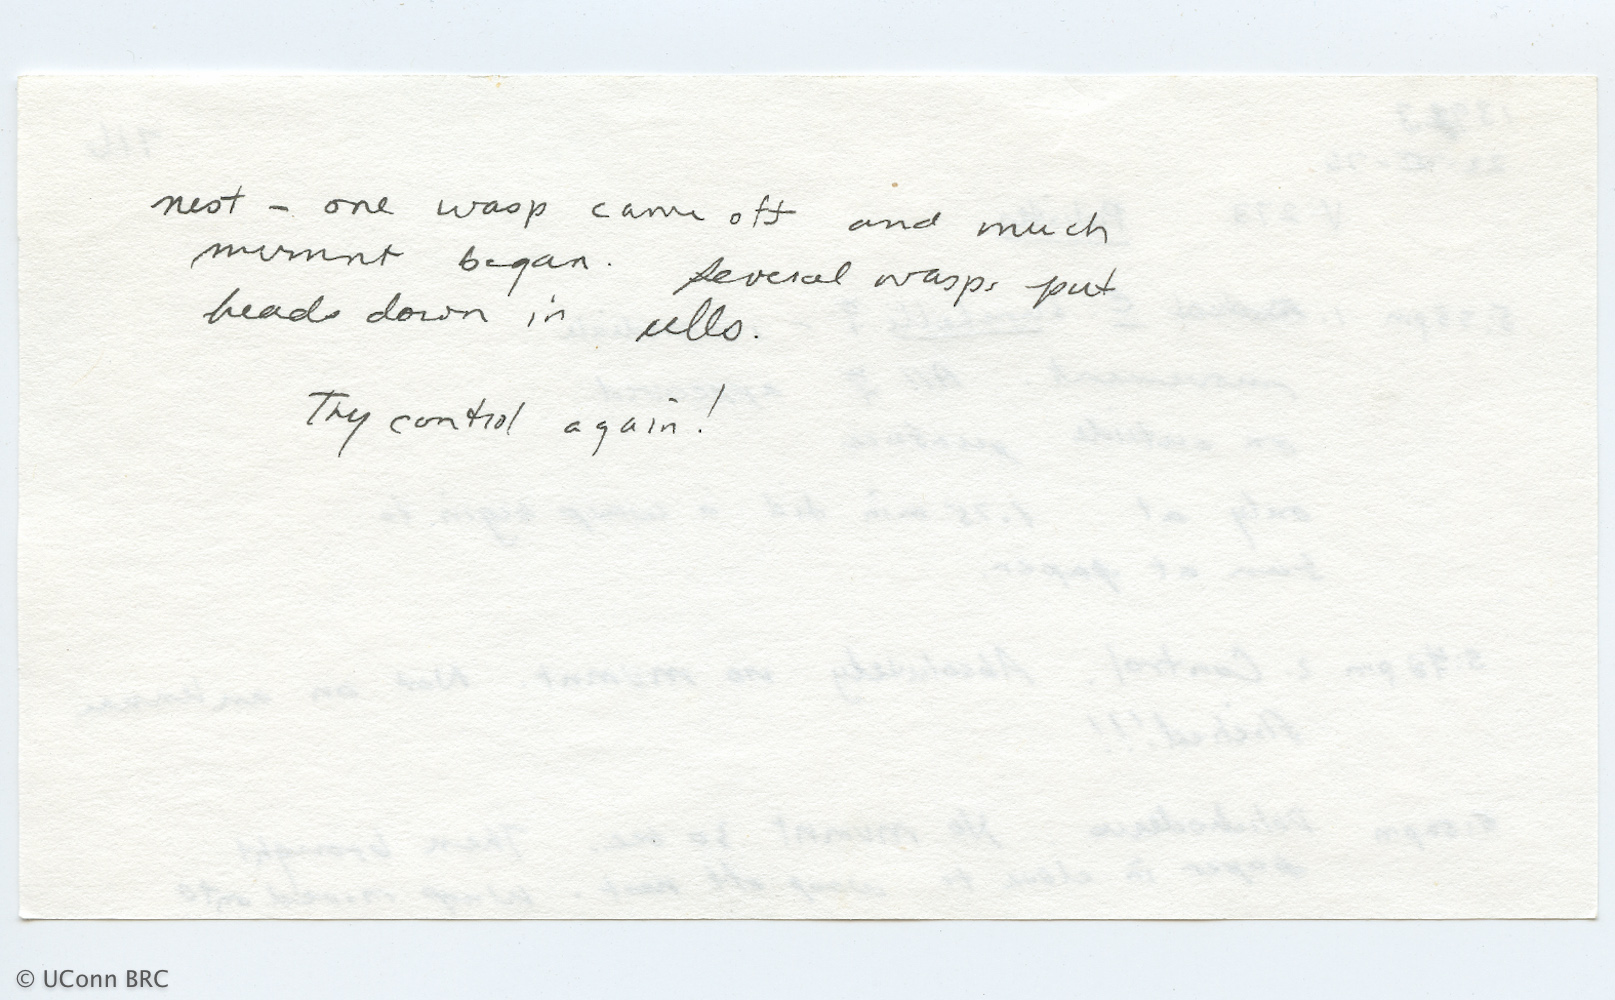 nest – one wasp came off and much
mvmnt began. Several wasps put
heads down in cells.
Try control again!
© UConn BRC